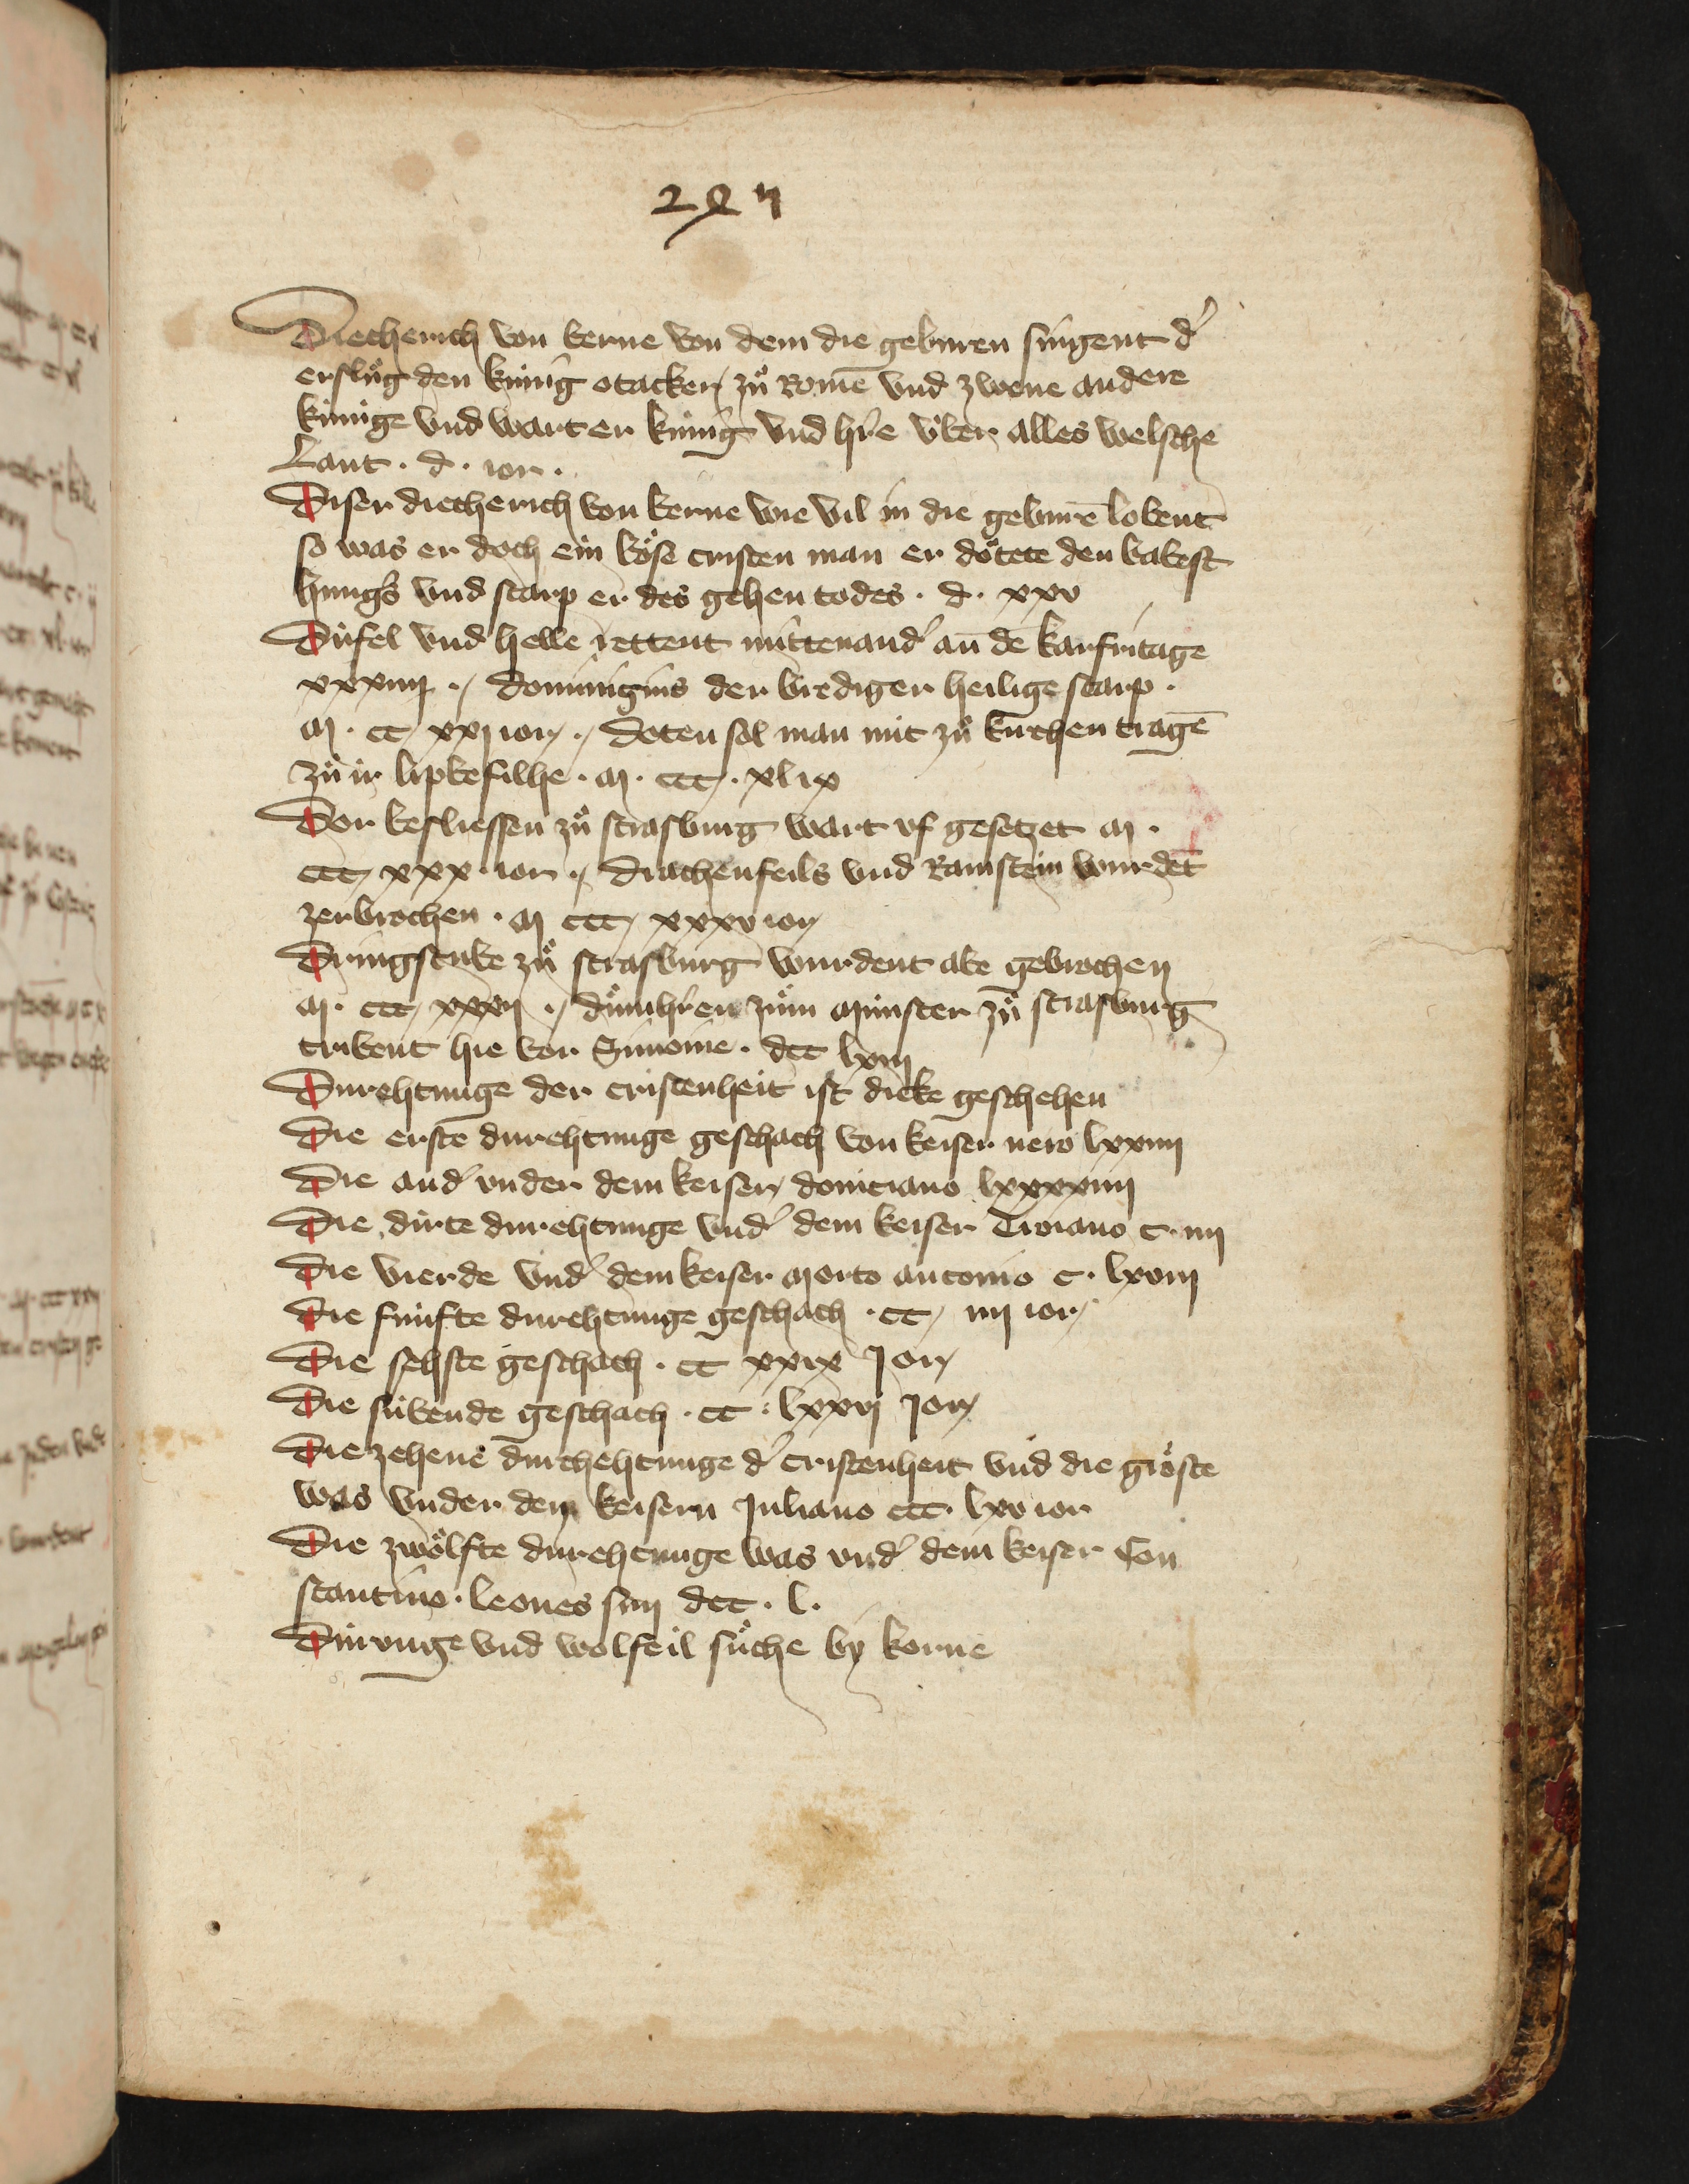 Diecherich von berne von dem die geburen singent d'
ersluͦg den kúnig otacker zuͦ Rome vnd zwene andere
kúnige vnd wart er kúnig vnd h're vͤber alles welsche
Lant · d · ior ·
Diser diecherich von berne wie vil in die geburē lobent
so was er doch ein boͤse cristen man er doͤtete den babest
vnd starp er des gehen todes · d · xxv
Túfel vnd helle rettent mittenand' an dē karfritage
xxxiiij · dominigius der brediger heilige starp ·
M · cc xxj ior · doten sol man nút zuͦ kirchen tragē
zuͦ ir lipbefilhe · M · ccc · xlix
Dor besliessen zuͦ strasburg wart vf gesetzet M ·
ccc xxx · ior · drachenfeils vnd Ramstein wurdēt
zerbrochen · M ccc xxxv ior
Dringstube zuͦ strasburg wurdent abe gebrochen
M · ccc xxxij · duͦmh'ren zuͦm Múnster zuͦ strasburg
tribent hie vor Simonie · dcc lxiij
Durehtunge der cristenheit ist dicke geschehen
Die erste durehtunge geschach von keiser nero lxxiiij
Die and' vnder dem keiser domiciano lxxxxiiij
Die dirte durehtunge vnd' dem keiser Troiano c · iiij
Die vierde vnd' dem keiser Morto antonio c · lxviij
Die fúnfte durehtunge geschach · cc iiij ior
Die sehste geschach · cc xxix Jor
Die súbende geschach · cc · lxxvj Jor
Die zehene durchehtunge d' cristenheit vnd die groͤste
was vnder dem keisern Juliano ccc · lxv ior
Die zwoͤlfte durehtunge was vnd' dem keiser Con
stantino · leones sun dcc · l ·
Dúrunge vnd wolfeil suͦche by korne